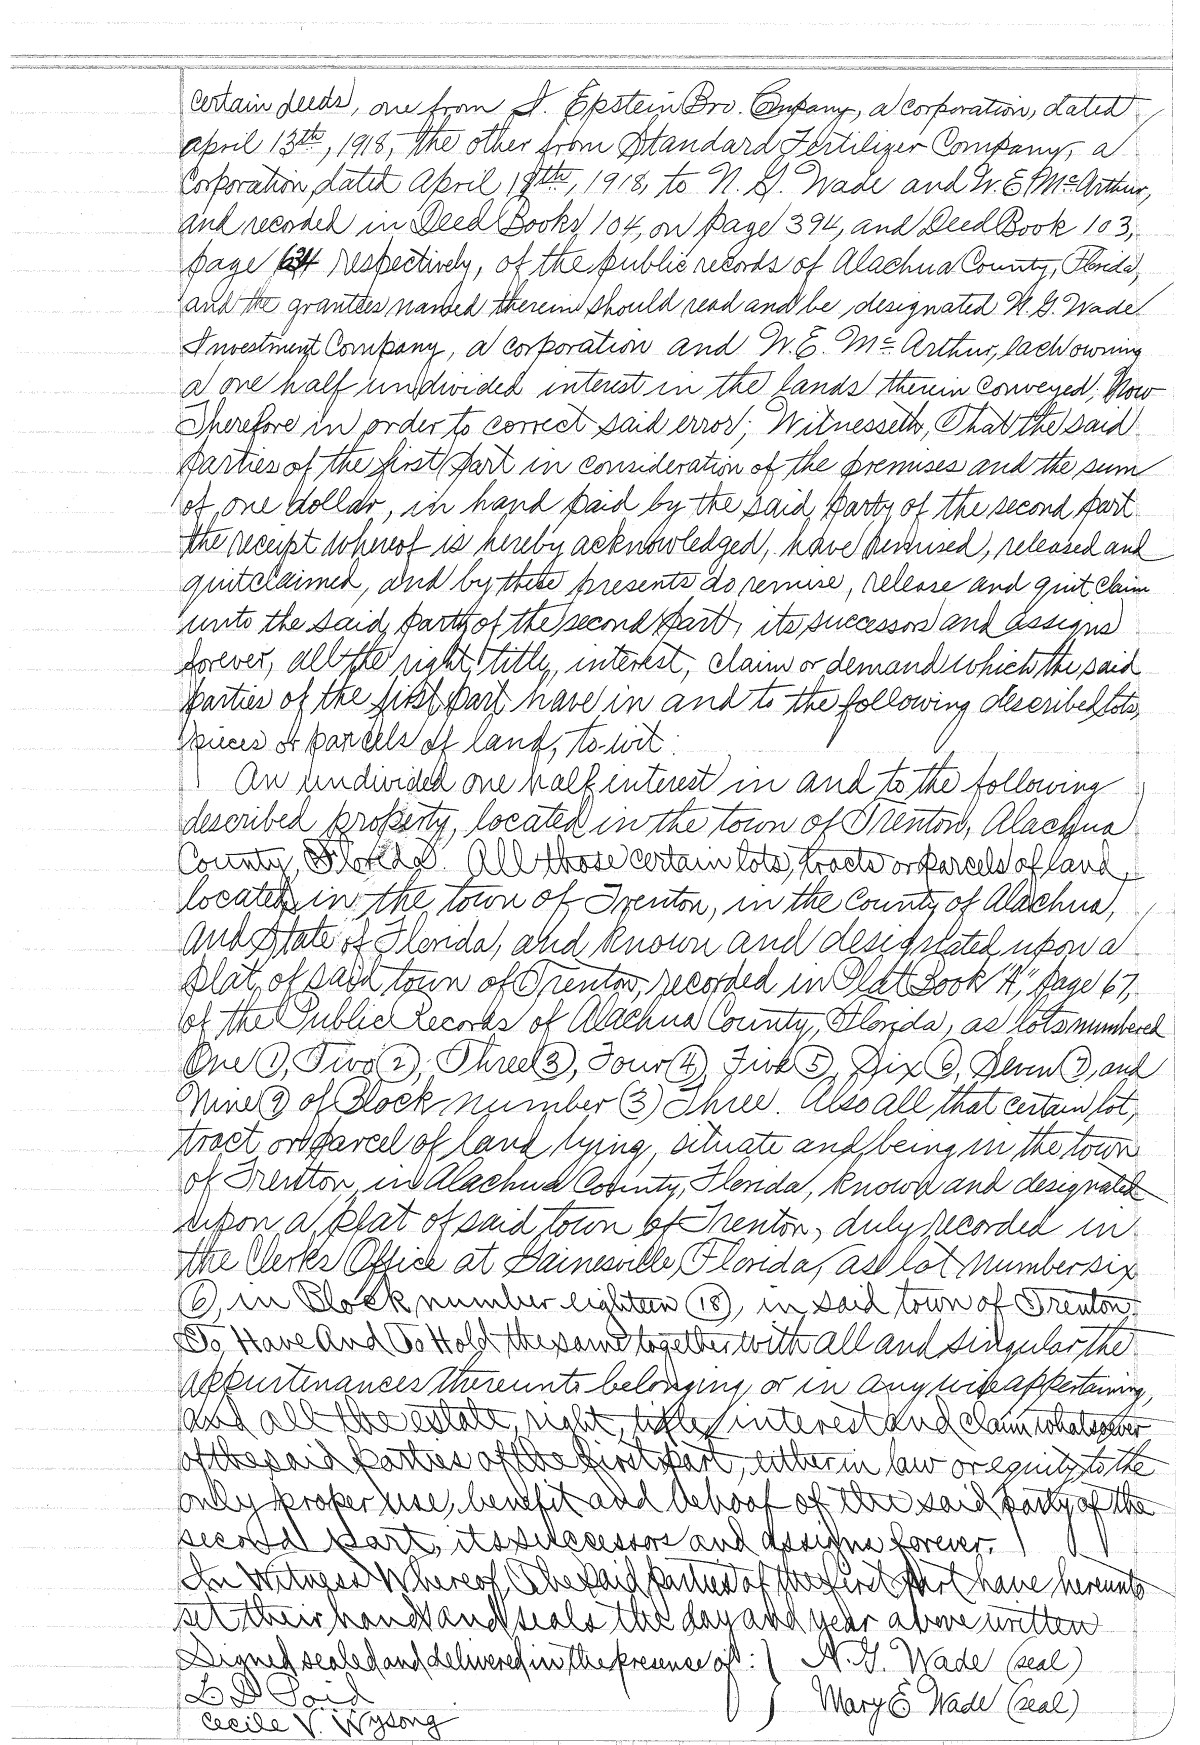 certain deeds, one from I. Epstein Bro. Company, a corporation, dated
April 13th, 1918, the other from Standard Fertilizer Company, a
Corporation, dated April 19th, 1918, to N. G. Wade and W. E. McArthur,
and recorded in Deed Books 104, on page 394, and Deed Book 103,
page 634 respectively, of the public records of Alachua County, Florida,
and the grantees named therein should read and be designated N. G. Wade
Investment Company, a corporation and W. E. Mc Arthur, each owning
a one half undivided interest in the lands therein conveyed; Now
Therefore in order to correct said error; Witnesseth, That the said
parties of the first part in consideration of the premises and the sum
of one dollar, in hand paid by the said party of the second part
the receipt whereof is hereby acknowledged, have remised, released and
quitclaimed, and by these presents do remise, release and quit claim
unto the said party of the second part, its successors and assigns
forever, all the right, title, interest, claim or demand which the said
parties of the first part have in and to the following described lots,
pieces or parcels of land, to-wit:
An undivided one half interest in and to the following
described property, located in the town of Trenton, Alachua
County, Florida. All those certain lots, tracts or parcels of land,
located in the town of Trenton, in the County of Alachua,
and State of Florida, and known and designated upon a
plat of said town of Trenton, recorded in Plat Book "A", page 67,
of the Public Records of Alachua County, Florida, as lots numbered
One (1), Two (2), Three (3), Four (4), Five (5), Six (6), Seven (7), and
Nine (9) of Block number (3) Three. Also all that certain lot,
tract or parcel of land lying, situate and being in the town
of Trenton, in Alachua County, Florida, known and designated
upon a plat of said town of Trenton, duly recorded in
the Clerks Office at Gainesville, Florida, as lot number six
(6), in Block number eighteen (18), in said town of Trenton.
To Have And To Hold the same together with all and singular the
appurtenances thereunto belonging or in any wise appertaining,
and all the estate, right, title, interest and claim whatsoever
of the said parties of the first part, either in law or equity to the
only proper use, benefit and behoof of the said party of the
second part, its successors and assigns forever.
In Witness Whereof, The said parties of the first part have hereunto
set their hands and seals the day and year above written
Signed sealed and delivered in the presence of: } N. G. Wade (seal)
L D } Mary E Wade (seal)
Cecile V. Wysong